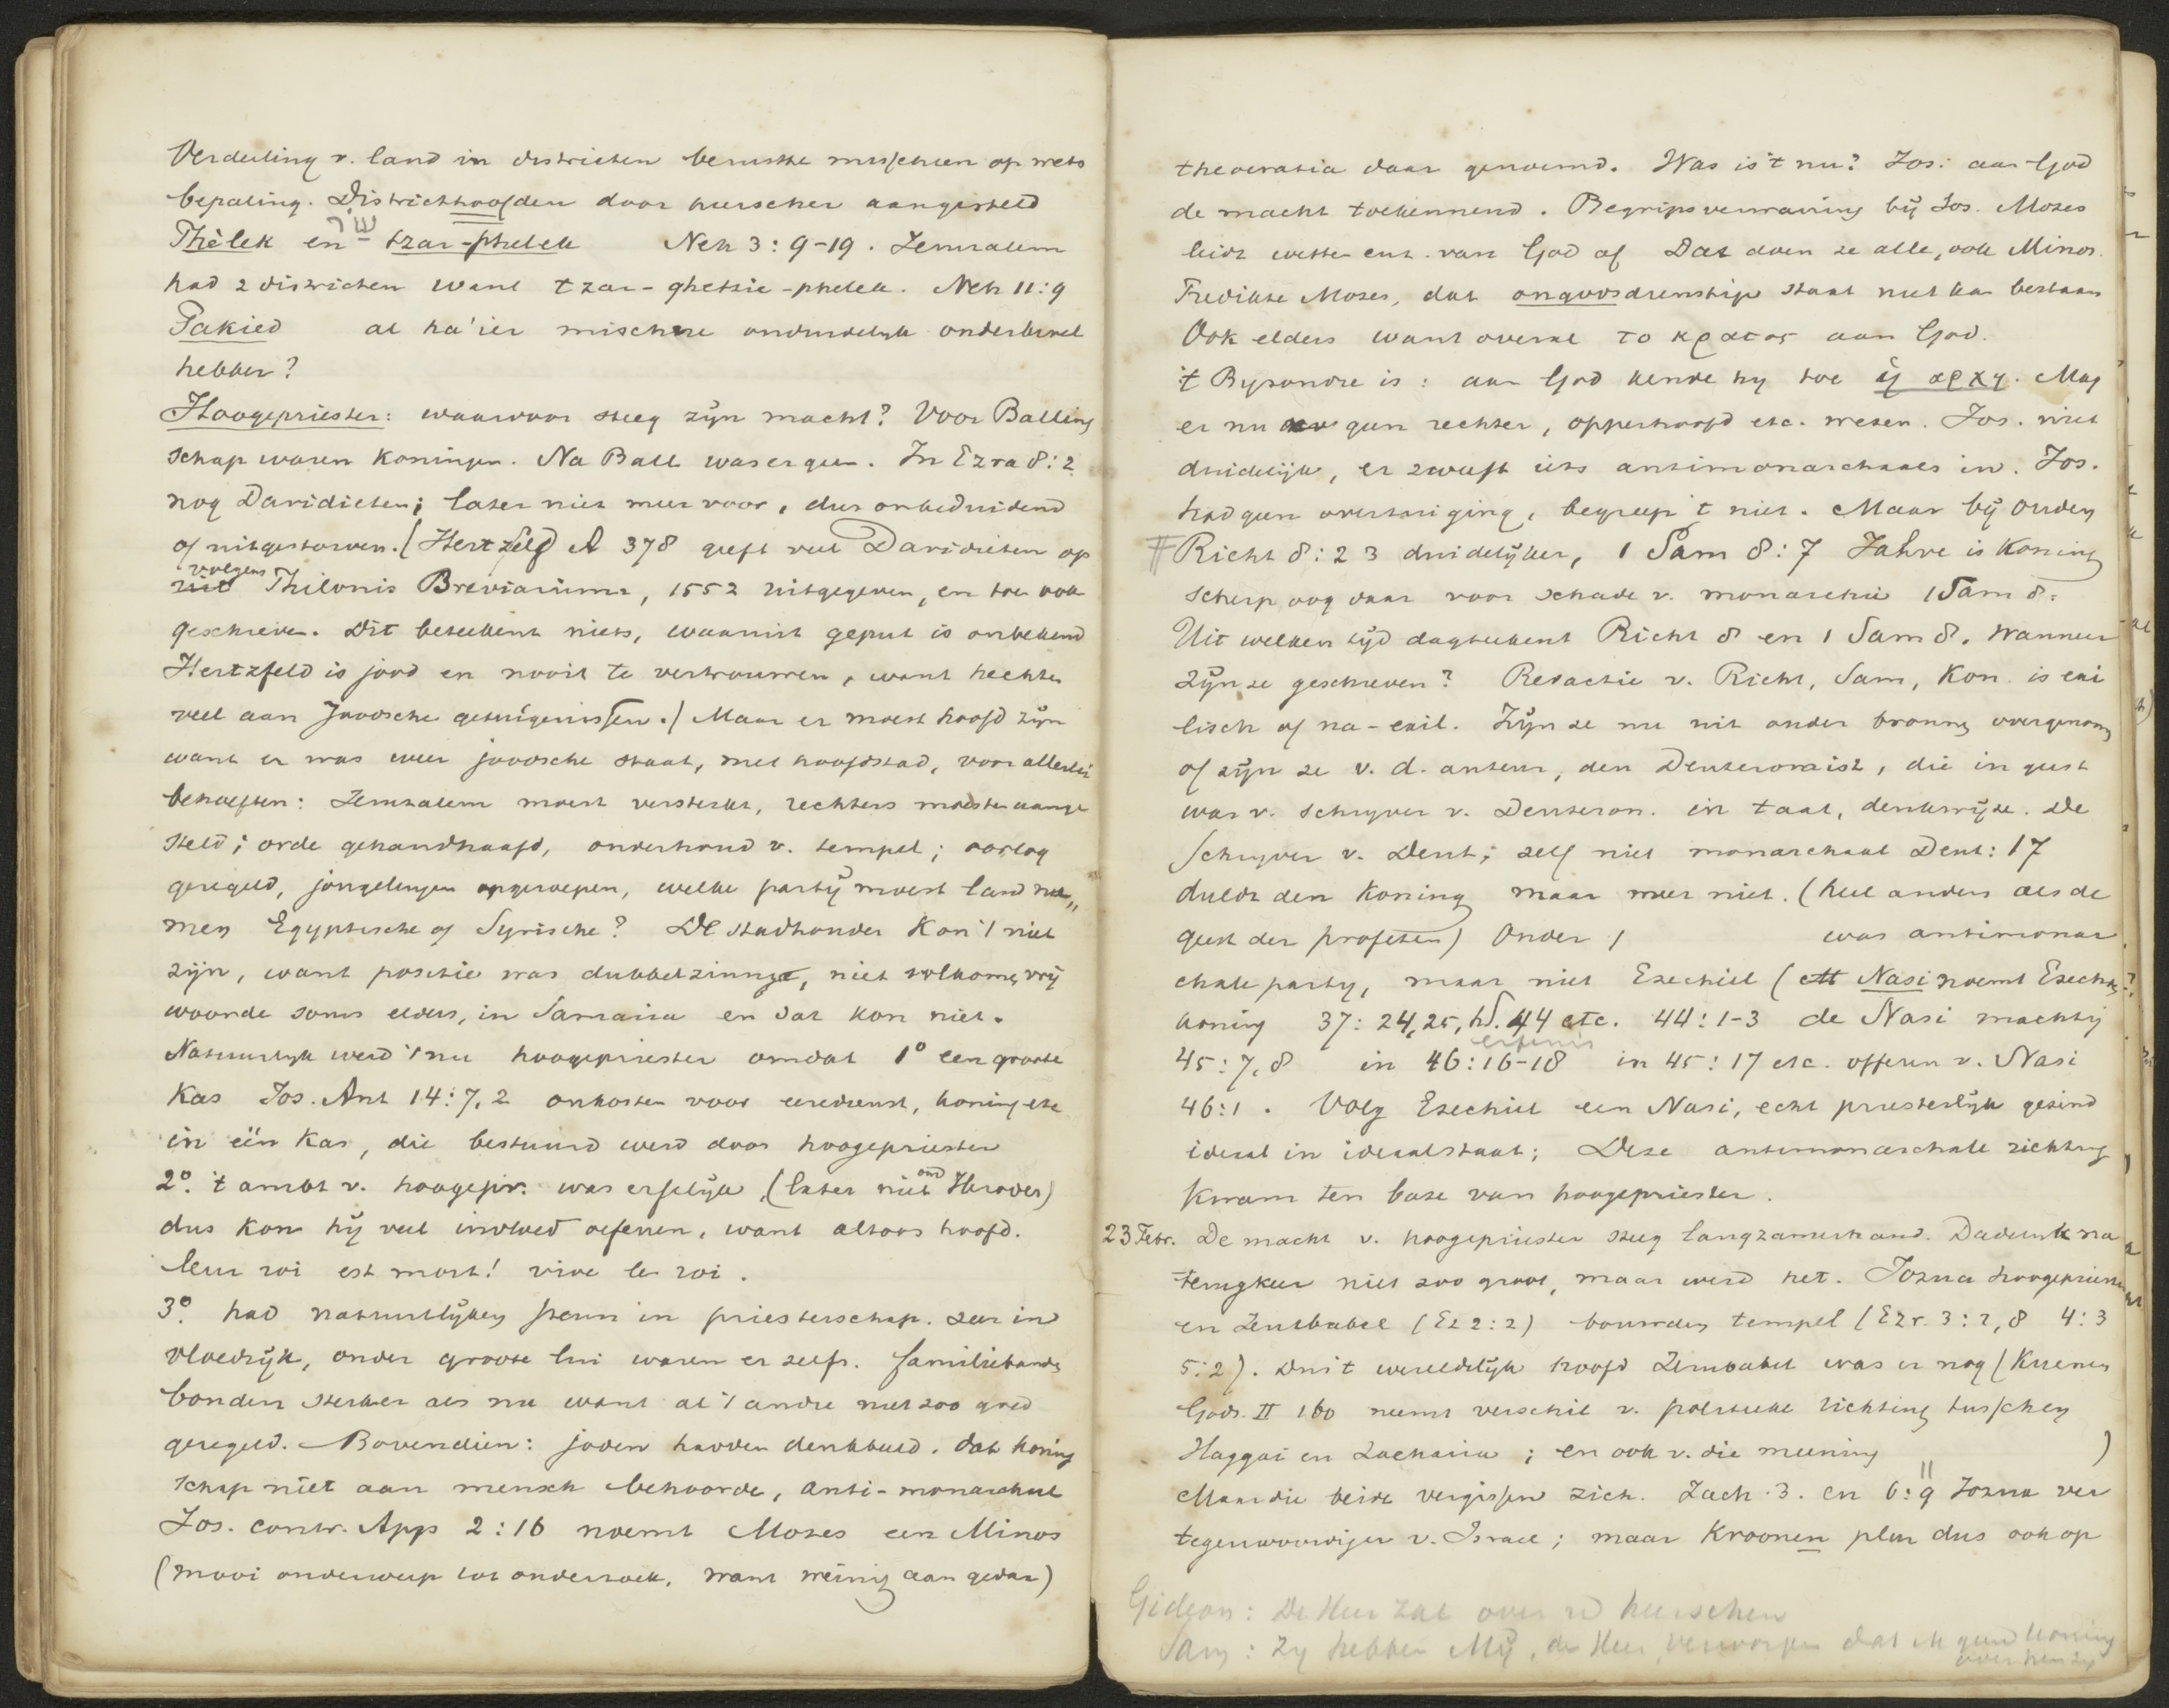 Verdeeling v. land in districten berustte misschien op wets
bepaling. Districthoofden door heerscher aangesteld
שׂר
Phèlek en tzar-phelek Neh 3:9-19. Jeruzalem
had 2 districten want tzar-ghetsie-phelek. Neh 11:9
Pakied al ha'ier mischne onderbevel
hebben?
Hoogepriester: waarvoor steeg zijn macht? Voor Balling
schap waren koningen. Na Ball was er geen. In Ezra 8:2
nog Davidieten; later niet meer voor, dus onbeduidend
of uitgestorven. (Hertzfeld A 378 geeft veel Davidieten op
volgens
uit Philonis Breviarium, 1552 uitgegeven, en toe ook
geschreven. Dit beteekent niets, waaruit geput is onbekend
Hertzfeld is jood en nooit te vertrouwen, want hechtte
veel aan Joodsche getuigenissen.) Maar er moest hoofd zijn
want er was weer joodsche staat, met hoofdstad, voor allerlei
behoeften: Jeruzalem moest versterkt, rechters moesten aange
steld; orde gehandhaafd, onderhoud v. tempel; oorlog
geregeld, jongelingen opgeroepen, welke partij moest land ne"
men Egyptische of Syrische? De stadhouder kon 't niet
zijn, want positie was dubbelzinnig, niet volkomen vrij
woonde soms elders, in Samaria en dat kon niet.
Natuurlijk werd 't nu hoogepriester omdat 1° een groote
kas Jos. Ant 14:7,2 onkosten voor eeredienst, koning etc
in één kas, die bestuurd werd door hoogepriester
2°. 't ambt v. hoogepr. was erfelijk (later niet ond Herodes)
dus kon hij veel invloed oefenen, want altoos hoofd.
leur roi est mort! vive le roi.
3°. had natuurlijken steun in priesterschap. zeer in
vloedrijk, onder groote lui waren er zelfs. familiebanden
bonden sterker als nu want al 't andre niet zoo goed
geregeld. Bovendien: joden hadden denkbeeld, dat koning
schap niet aan mensch behoorde, anti-monarchaal
Jos. contr. App 2:16 noemt Mozes een Minos
(mooi onderwerp tot onderzoek, want weinig aan gedaan)
theocratia daar genoemd. Was is 't nu? Jos: aan God
de macht toekennend. Begripsverwarring bij Jos. Mozes
leidt wetten enz. van God af Dat doen ze alle, ook Minos.
Predikte Mozes, dat ongodsdienstige staat niet kan bestaan
Ook elders want overal το κρατος aan God.
't Byzondre is: aan God kende hij toe ἡ αρχη. Mag
er nu geen rechter, opperhoofd etc. wezen. Jos. niet
duidelijk, er zweeft iets antimonarchaals in. Jos.
had geen overtuiging, begreep 't niet. Maar bij ouden
# Richt 8:23 duidelijker, 1 Sam 8:7 Jahve is Koning
scherp oog daar voor schade v. monarchie 1 Sam 8.
Uit welken tijd dagteekent Richt 8 en 1 Sam 8. Wanneer
zijn ze geschreven? Redactie v. Richt, Sam, Kon. is exi
lisch of na-exil. Zijn ze nu uit ander bronnen overgenomen
of zijn ze v. d. auteur, den Deuteronomist, die in geest
was v. schrijver v. Deuteron. in taal, denkwijze. De
schrijver v. Deut; zelf niet monarchaal Deut: 17
duldt den koning maar meer niet. (heel anders als de
geest der profeten) Onder 1 was antimonar
chale partij, maar niet Ezechiel (Nasi noemt Ezech.
koning 37:24,25, hd. 44 etc. 44:1-3 de Nasi machtig
erfenis
45:7,8 in 46:16-18 in 45:17 etc. offeren v. Nasi
46:1. Volg Ezechiel een Nasi, echt priesterlijk gezind
ideaal in ideaalstaat; Deze antimonarchale richting
kwam ten bate van hoogepriester.
23 Febr. De macht v. hoogepriester steeg langzamerhand. Dadelijk na
terugkeer niet zoo groot, maar werd het. Jozua hoogepriester
en Zerubbabel (Ez 2:2) bouwden tempel (Ezr. 3:2,8 4:3
5:2). Dus 't wereldlijk hoofd Zerubbabel was er nog (Kuenen
Gods. II 160 neemt verschil v. politieke richting tusschen
Haggai en Zacharia; en ook v. die meening )
Maar die beide vergissen zich. Zach. 3. en 6:9 11 Jozua ver
tegenwoordiger v. Israel; maar Kroonen plur dus ook op
Gideon: De Heer zal over u heerschen
Sam: Zij hebben Mij, de Heer, verworpen dat ik geen koning
over hen zij